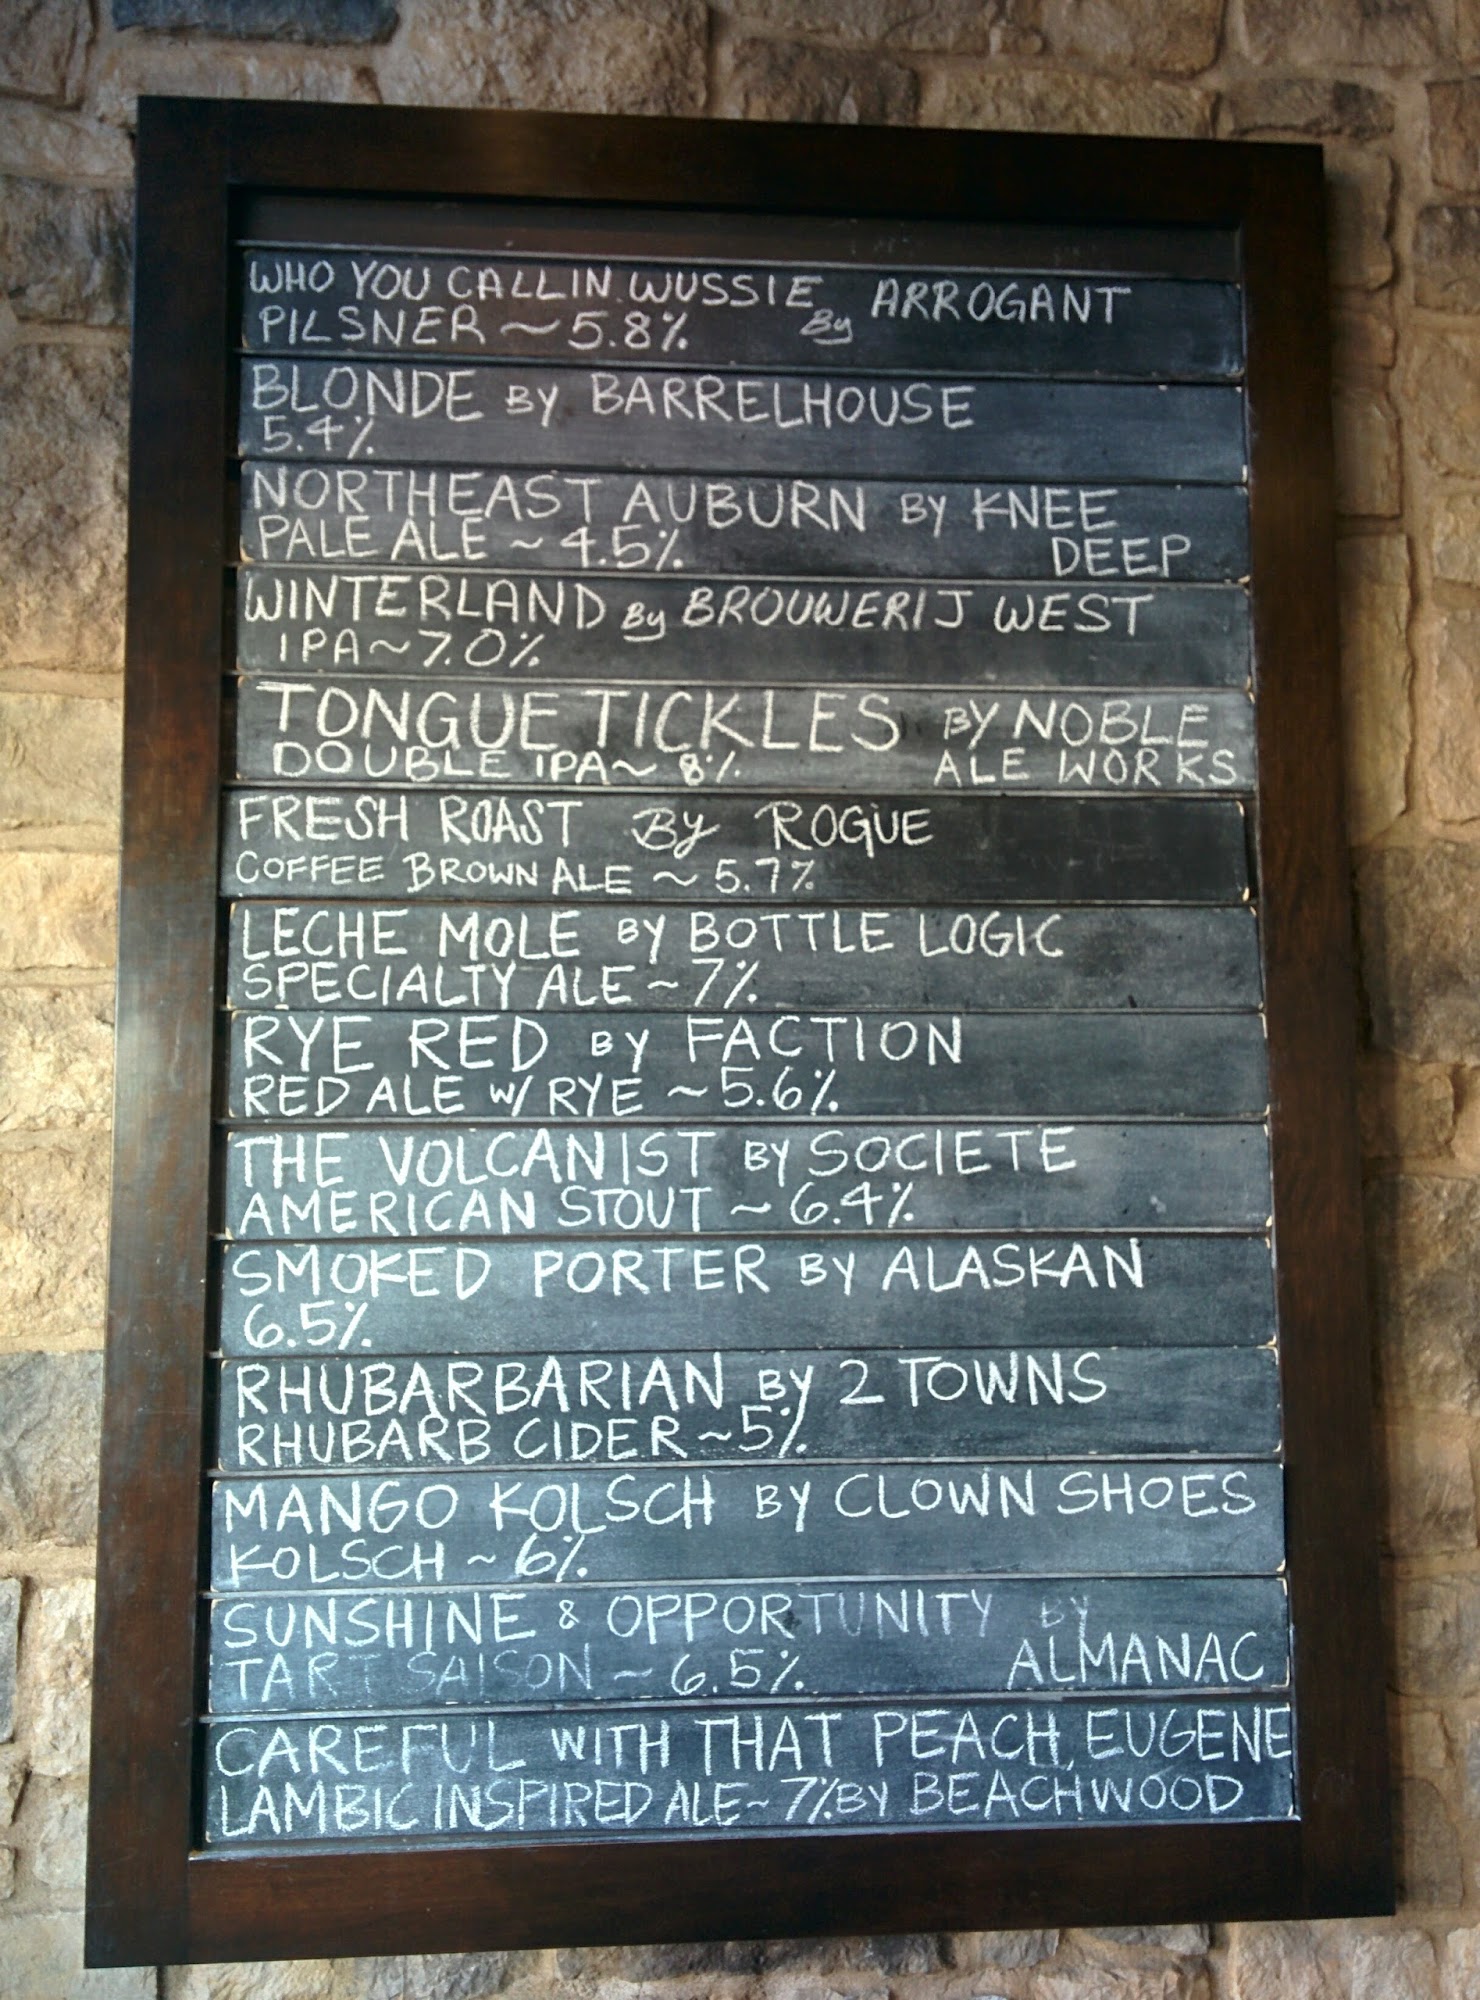 WHO YOU CALLIN WUSSIE By ARROGANT
PILSNER ~ 5.8%
BLONDE BY BARRELHOUSE
5.4%
NORTHEAST AUBURN BY KNEE
PALE ALE ~ 4.5% DEEP
WINTERLAND By BROUWERIJ WEST
IPA ~ 7.0%
TONGUE TICKLES BY NOBLE
DOUBLE IPA ~ 8% ALE WORKS
FRESH ROAST By ROGUE
COFFEE BROWN ALE ~ 5.7%
LECHE MOLE BY BOTTLE LOGIC
SPECIALTY ALE ~ 7%
RYE RED BY FACTION
RED ALE W/ RYE ~ 5.6%
THE VOLCANIST BY SOCIETE
AMERICAN STOUT ~ 6.4%
SMOKED PORTER BY ALASKAN
6.5%
RHUBARBARIAN BY 2 TOWNS
RHUBARB CIDER ~ 5%
MANGO KOLSCH BY CLOWN SHOES
KOLSCH ~ 6%
SUNSHINE & OPPORTUNITY BY
TART SAISON ~ 6.5% ALMANAC
CAREFUL WITH THAT PEACH, EUGENE
LAMBIC INSPIRED ALE ~ 7% BY BEACHWOOD